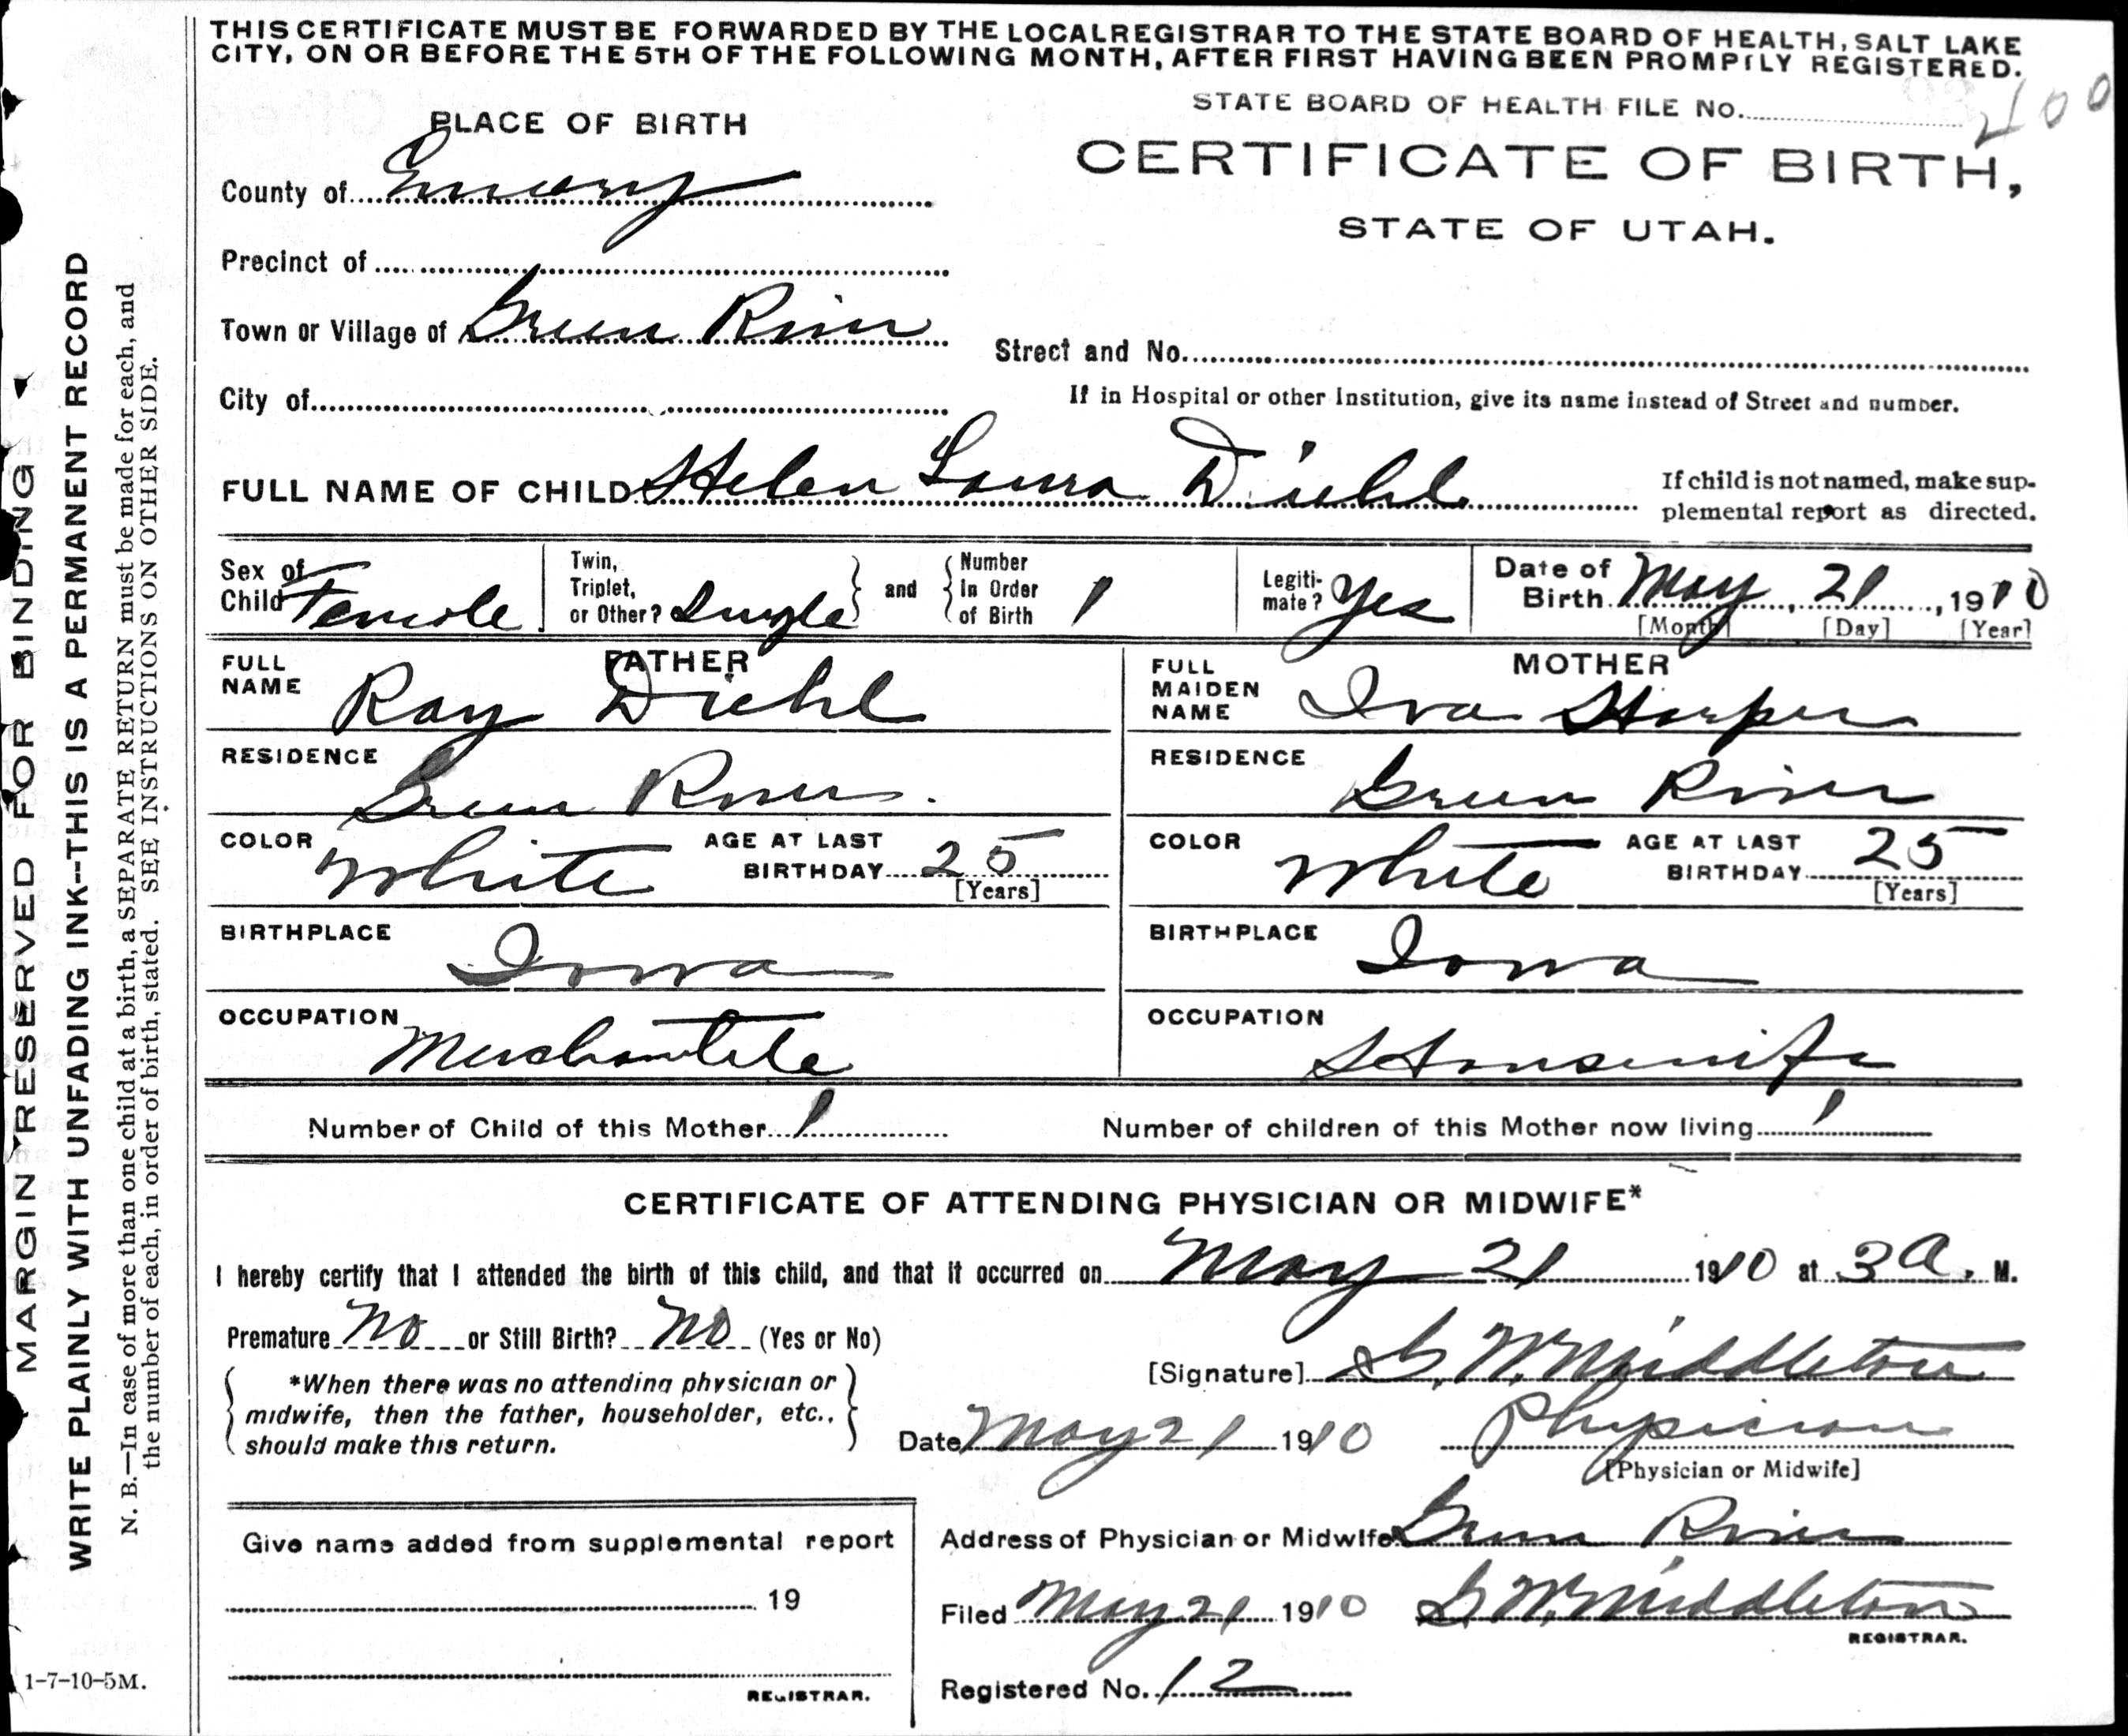 THIS CERTIFICATE MUST BE FORWARDED BY THE LOCAL REGISTRAR TO THE STATE BOARD OF HEALTH, SALT LAKE
CITY, ON OR BEFORE THE 5TH OF THE FOLLOWING MONTH, AFTER FIRST HAVING BEEN PROMPTLY REGISTERED.
STATE BOARD OF HEALTH FILE No. 400
PLACE OF BIRTH
CERTIFICATE OF BIRTH,
STATE OF UTAH.
County of Emery
Precinct of
Town or Village of Green River
Street and No.
City of
If in Hospital or other Institution, give its name instead of Street and number.
FULL NAME OF CHILD Helen Laura Diehl
If child is not named, make sup-
plemental report as directed.
Sex of Child Female
Twin, Triplet, or Other? Single
and
Number in Order of Birth 1
Legiti-mate? Yes
Date of Birth May 21, 1910
[Month] [Day] [Year]
FATHER
FULL NAME Ray Diehl
RESIDENCE Green River.
COLOR White
AGE AT LAST BIRTHDAY 25
[Years]
BIRTHPLACE Iowa
OCCUPATION Merchantile
MOTHER
FULL MAIDEN NAME Iva Harper
RESIDENCE Green River
COLOR White
AGE AT LAST BIRTHDAY 25
[Years]
BIRTHPLACE Iowa
OCCUPATION Housewife
Number of Child of this Mother 1
Number of children of this Mother now living 1
CERTIFICATE OF ATTENDING PHYSICIAN OR MIDWIFE*
I hereby certify that I attended the birth of this child, and that it occurred on May 21 1910 at 3 A. M.
Premature No or Still Birth? No (Yes or No)
*When there was no attending physician or
midwife, then the father, householder, etc.,
should make this return.
[Signature] G. W. Middleton
Date May 21 1910 Physician
[Physician or Midwife]
Give name added from supplemental report
19
REGISTRAR.
Address of Physician or Midwife Green River
Filed May 21 1910 G W. Middleton
REGISTRAR.
Registered No. 12
MARGIN RESERVED FOR BINDING
WRITE PLAINLY WITH UNFADING INK--THIS IS A PERMANENT RECORD
N. B.—In case of more than one child at a birth, a SEPARATE RETURN must be made for each, and
the number of each, in order of birth, stated. SEE INSTRUCTIONS ON OTHER SIDE.
1-7-10-5M.